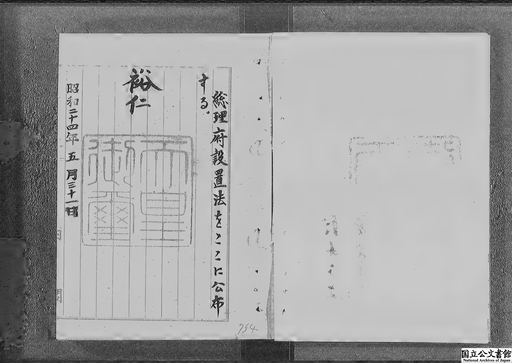 総理府設置法をここに公布
する。
裕仁
天皇御璽
昭和二十四年五月三十一日
784
国立公文書館
National Archives of Japan